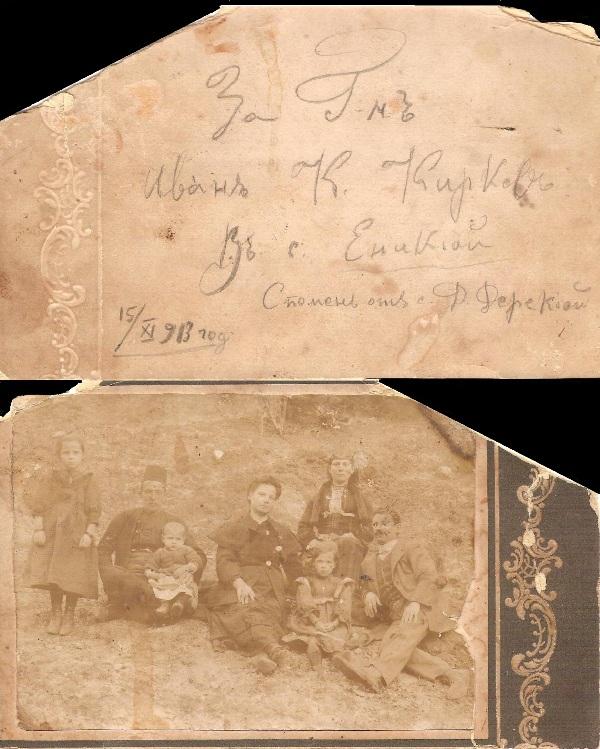 За Г-нъ
Иванъ К. Киркова
Въ с. Еникюй
Споменъ отъ с. Д. Дерекюй
15/XI 913 год.